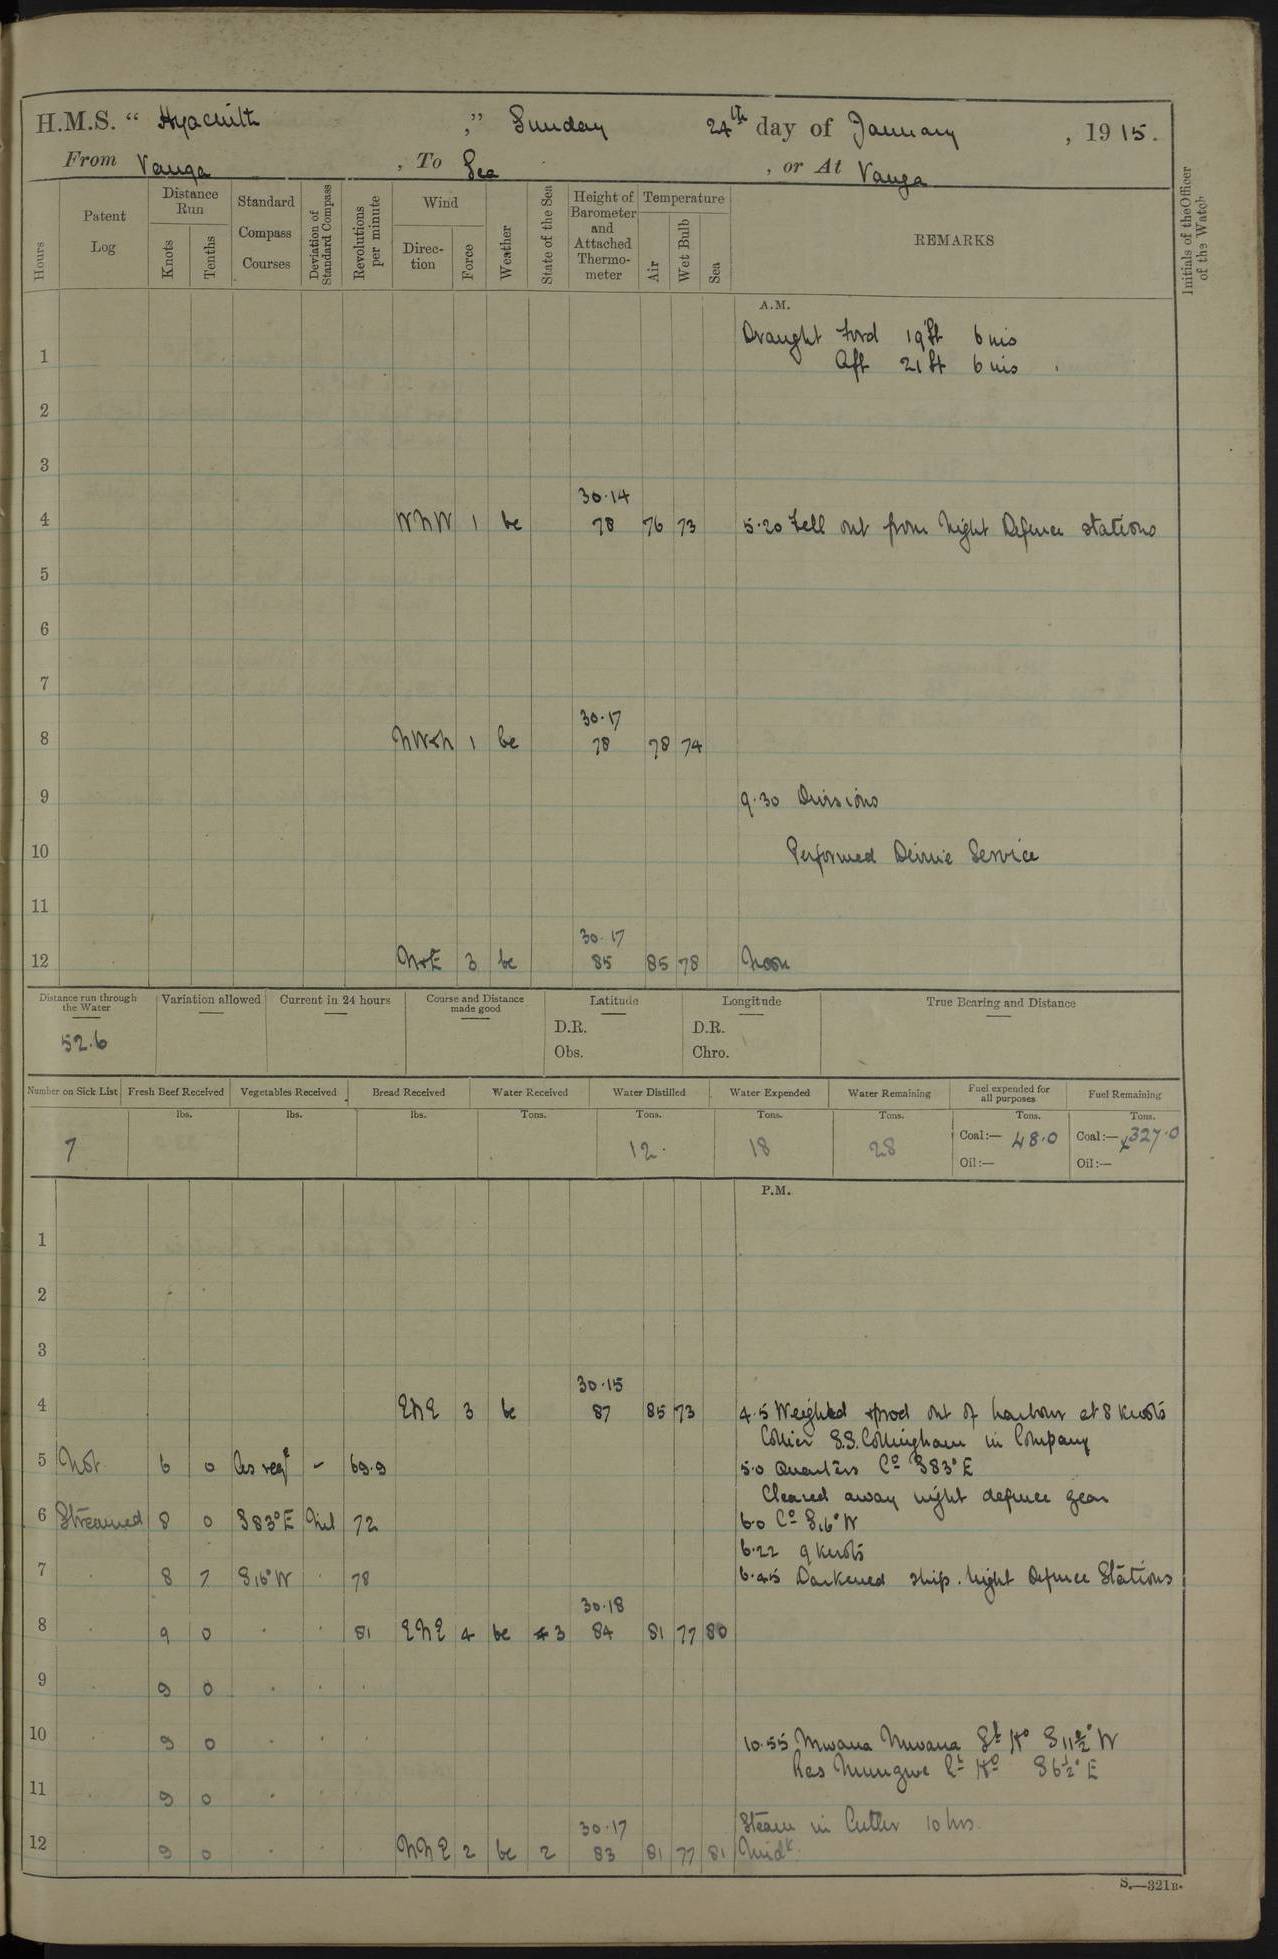 H.M.S. “ Hyacinth ,” Sunday 24th day of January , 1915.
From Vanga , To Sea , or At Vanga
Hours Patent Log Distance Run Knots Tenths Standard Compass Courses Deviation of Standard Compass Revolutions per minute Wind Direction Force Weather State of the Sea Height of Barometer and Attached Thermometer Temperature Air Wet Bulb Sea REMARKS Initials of the Officer of the Watch
A.M.
Draught Ford 19 ft 6 ins
1 Aft 21 ft 6 ins
2
3
30.14
4 WNW 1 bc 78 76 73 5.20 Fell out from Night Defence stations
5
6
7
30.17
8 NWxN 1 bc 78 78 74
9 9.30 Divisions
10 Performed Devine Service
11
30.17
12 NxE 3 bc 85 85 78 Noon
Distance run through the Water Variation allowed Current in 24 hours Course and Distance made good Latitude Longitude True Bearing and Distance
D.R. D.R.
52.6
Obs. Chro.
Number on Sick List Fresh Beef Received Vegetables Received Bread Received Water Received Water Distilled Water Expended Water Remaining Fuel expended for all purposes Fuel Remaining
lbs. lbs. lbs. Tons. Tons. Tons. Tons. Tons. Tons.
7 12. 18 28 Coal:— 48.0 Coal:— x327.0
Oil:— Oil:—
P.M.
1
2
3
30.15
4 ENE 3 bc 87 85 73 4.5 Weighed & prod out of harbour at 8 knots
Collier S.S. Collingham in Company
5 Not 6 0 As reqd - 69.9 5.0 Quarters Co S83°E
Cleared away night defence gear
6 Streamed 8 0 S83°E Nil 72 6.0 Co S16°W
6.22 9 knots
7 8 7 S16°W . 78 6.45 Darkened ship. Night Defence Stations
30.18
8 . 9 0 . . 81 ENE 4 bc 4 3 84 81 77 80
9 . 9 0 . . .
10 . 9 0 . . . 10.55 Mwana Mwana Lt Ho S11½°W
Ras Nungwe Lt Ho S6½°E
11 . 9 0 .
30.17 Steam in Cutter 10 hrs.
12 . 9 0 . . . NNE 2 bc 2 83 81 77 81 Midt.
S.—321B.